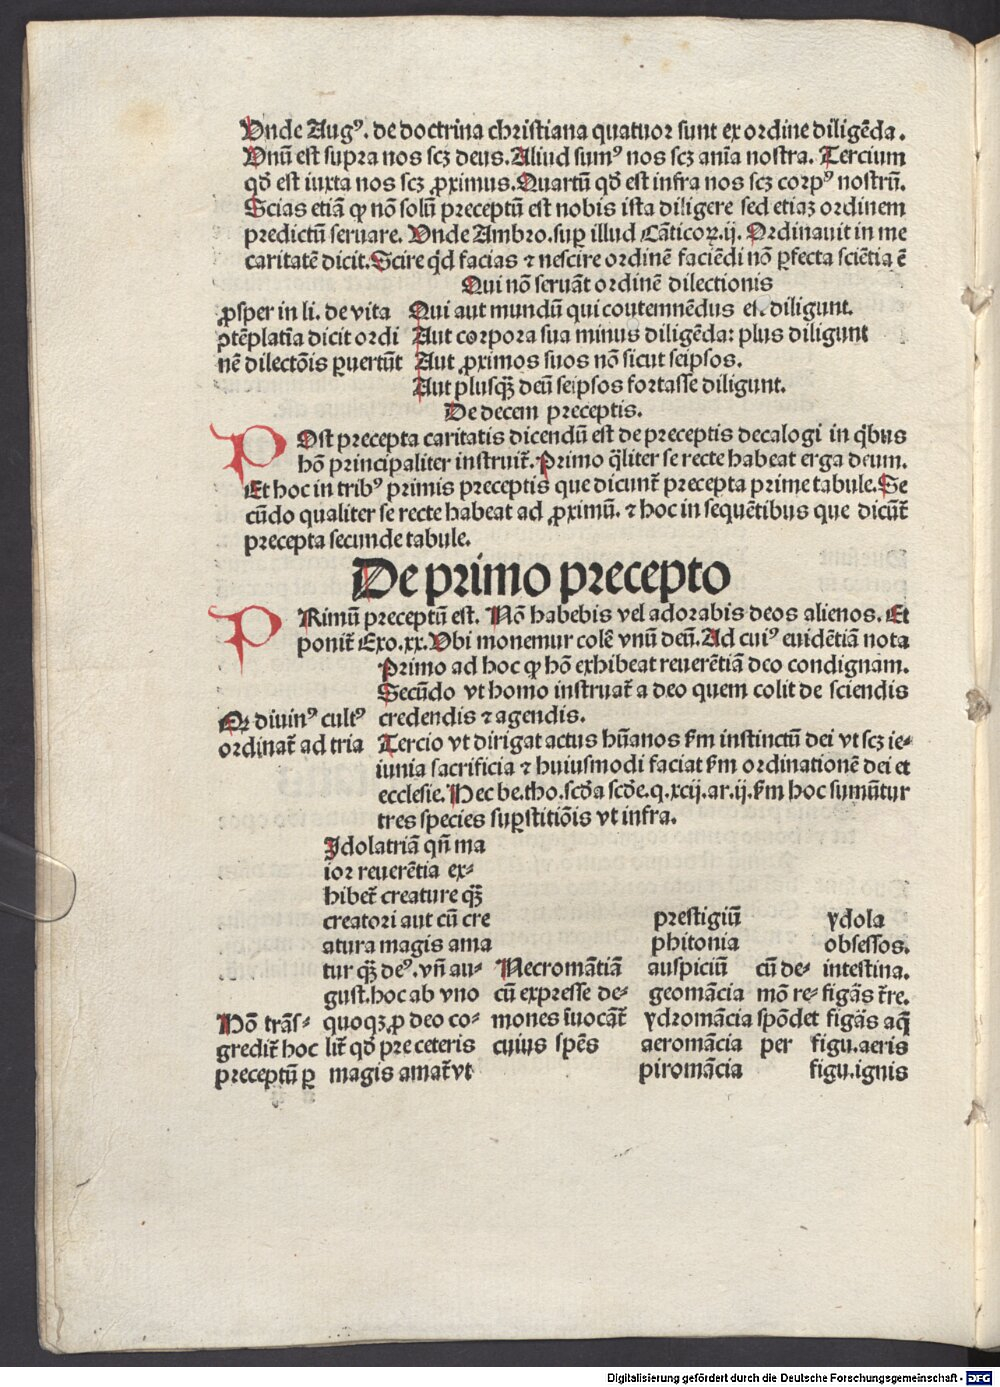 Vnde Augꝰ. de doctrina christiana quatuor sunt ex ordine diligēda.
Vnū est supra nos scꝫ deus. Aliud sumꝰ nos scꝫ aīa nostra. Tercium
qd̄ est iuxta nos scꝫ ꝓximus. Quartū qd̄ est infra nos scꝫ corpꝰ nostrū.
Scias etiā ꝙ nō solū preceptū est nobis ista diligere sed etiaꝫ ordinem
predictū seruare. Vnde Ambro. sup̄ illud Cāticoꝝ. ij. Ordinauit in me
caritatē dicit. Scire qd̄ facias ⁊ nescire ordinē faciēdi nō ꝑfecta sciētia ē
Qui nō seruāt ordinē dilectionis
ꝓsper in li. de vita
ꝯtēplatīa dicit ordi
nē dilectōis ꝑuertūt
Qui aut mundū qui contemnēdus est diligunt.
Aut corpora sua minus diligēda: plus diligunt
Aut ꝓximos suos nō sicut seipsos.
Aut plusqꝫ̄ deū seipsos fortasse diligunt.
De decem preceptis.
POst precepta caritatis dicendū est de preceptis decalogi in qͥbus
hō principaliter instruit̄. Primo qͣliter se recte habeat erga deum.
Et hoc in tribꝰ primis preceptis que dicunt̄ precepta prime tabule. Se
cūdo qualiter se recte habeat ad ꝓximū. ⁊ hoc in sequētibus que dicūt̄
precepta secunde tabule.
De primo precepto
PRimū preceptū est. Nō habebis vel adorabis deos alienos. Et
ponit̄ Exo. xx. Vbi monemur colē vnū deū. Ad cuiꝰ euidētiā nota
Ꝙ diuinꝰ cultꝰ
ordinat̄ ad tria
Primo ad hoc ꝙ hō exhibeat reuerētiā deo condignam.
Secūdo vt homo instruat̄ a deo quem colit de sciendis
credendis ⁊ agendis.
Tercio vt dirigat actus hūanos ẜm instinctū dei vt scꝫ ie-
iunia sacrificia ⁊ huiusmodi faciat ẜm ordinationē dei et
ecclesie. Hec be. tho. scd̄a scd̄e. q. xcij. ar. ij. ẜm hoc sumūtur
tres species sup̄stitiōis vt infra.
Nō trās-
gredit̄ hoc
preceptū ꝑ
Idolatriā qn̄ ma
ior reuerētia ex-
hibet̄ creature qꝫ̄
creatori aut cū cre
atura magis ama
tur qꝫ̄ deꝰ. vn̄ au-
gust. hoc ab vno
quoqꝫ ꝓ deo co-
lit̄ qd̄ pre ceteris
magis amat̄ vt
Necromātiā
cū expresse de-
mones īuocāt̄
cuius spēs
prestigiū
phitonia
auspiciū
geomācia
ydromācia
aeromācia
piromācia
cū de-
mō re-
spōdet
per
ydola
obsessos.
intestina.
figās t̄re.
figās aq̄
figu. aeris
figu. ignis
Digitalisierung gefördert durch die Deutsche Forschungsgemeinschaft - DFG